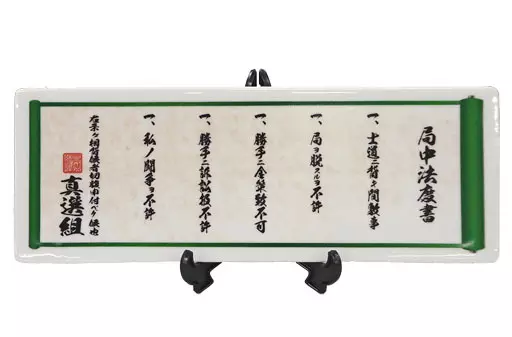 局中法度書
一、士道ニ背キ間敷事
一、局ヲ脱スルヲ不許
一、勝手ニ金策致不可
一、勝手ニ訴訟扱不許
一、私ノ闘争ヲ不許
右条々相背候者切腹申付ベク候也
真選組